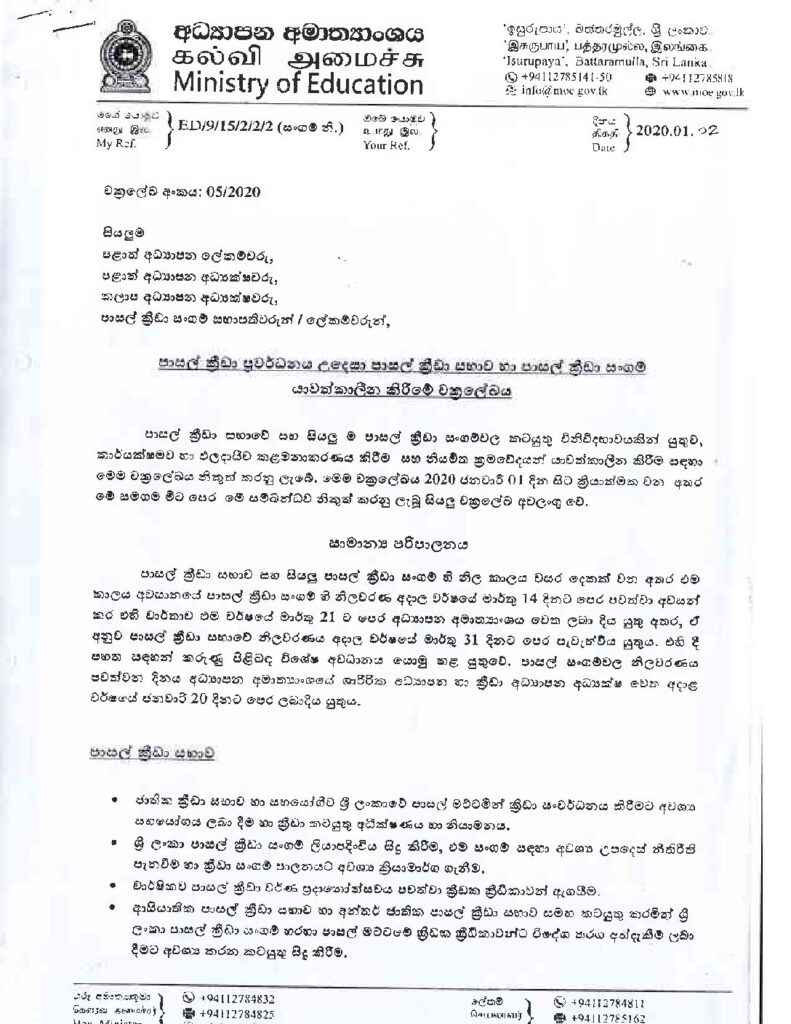 අධ්‍යාපන අමාත්‍යාංශය
கல்வி அமைச்சு
Ministry of Education
'ඉසුරුපාය', බත්තරමුල්ල, ශ්‍රී ලංකාව.
'இசுருபாய', பத்தரமுல்ல, இலங்கை.
'Isurupaya', Battaramulla, Sri Lanka.
+94112785141-50 +94112785818
info@moe.gov.lk www.moe.gov.lk
මගේ යොමුව
எனது இல.
My Ref.
ED/9/15/2/2/2 (සංගම් නි.)
ඔබේ යොමුව
உமது இல.
Your Ref.
දිනය
திகதி
Date
2020.01.02
චක්‍රලේඛ අංකය: 05/2020
සියලුම
පළාත් අධ්‍යාපන ලේකම්වරු,
පළාත් අධ්‍යාපන අධ්‍යක්ෂවරු,
කලාප අධ්‍යාපන අධ්‍යක්ෂවරු,
පාසල් ක්‍රීඩා සංගම් සභාපතිවරුන් / ලේකම්වරුන්,
පාසල් ක්‍රීඩා ප්‍රවර්ධනය උදෙසා පාසල් ක්‍රීඩා සභාව හා පාසල් ක්‍රීඩා සංගම්
යාවත්කාලීන කිරීමේ චක්‍රලේඛය
පාසල් ක්‍රීඩා සභාවේ සහ සියලු ම පාසල් ක්‍රීඩා සංගම්වල කටයුතු විනිවිදභාවයකින් යුතුව,
කාර්යක්ෂමව හා ඵලදායීව කළමනාකරණය කිරීම සහ නියමිත ක්‍රමවේදයන් යාවත්කාලීන කිරීම සඳහා
මෙම චක්‍රලේඛය නිකුත් කරනු ලැබේ. මෙම චක්‍රලේඛය 2020 ජනවාරි 01 දින සිට ක්‍රියාත්මක වන අතර
මේ සමගම මීට පෙර මේ සම්බන්ධව නිකුත් කරනු ලැබූ සියලු චක්‍රලේඛ අවලංගු වේ.
සාමාන්‍ය පරිපාලනය
පාසල් ක්‍රීඩා සභාව සහ සියලු පාසල් ක්‍රීඩා සංගම් හි නිල කාලය වසර දෙකක් වන අතර එම
කාලය අවසානයේ පාසල් ක්‍රීඩා සංගම් හි නිලවරණ අදාල වර්ෂයේ මාර්තු 14 දිනට පෙර පවත්වා අවසන්
කර එහි වාර්තාව එම වර්ෂයේ මාර්තු 21 ට පෙර අධ්‍යාපන අමාත්‍යාංශය වෙත ලබා දිය යුතු අතර, ඒ
අනුව පාසල් ක්‍රීඩා සභාවේ නිලවරණය අදාල වර්ෂයේ මාර්තු 31 දිනට පෙර පැවැත්විය යුතුය. එහි දී
පහත සඳහන් කරුණු පිළිබඳ විශේෂ අවධානය යොමු කළ යුතුවේ. පාසල් සංගම්වල නිලවරණය
පවත්වන දිනය අධ්‍යාපන අමාත්‍යාංශයේ ශාරීරික අධ්‍යාපන හා ක්‍රීඩා අධ්‍යාපන අධ්‍යක්ෂ වෙත අදාළ
වර්ෂයේ ජනවාරි 20 දිනට පෙර ලබාදිය යුතුය.
පාසල් ක්‍රීඩා සභාව
• ජාතික ක්‍රීඩා සභාව හා සහයෝගීව ශ්‍රී ලංකාවේ පාසල් මට්ටමින් ක්‍රීඩා සංවර්ධනය කිරීමට අවශ්‍ය
සහයෝගය ලබා දීම හා ක්‍රීඩා කටයුතු අධීක්ෂණය හා නියාමනය.
• ශ්‍රී ලංකා පාසල් ක්‍රීඩා සංගම් ලියාපදිංචිය සිදු කිරීම, එම සංගම් සඳහා අවශ්‍ය උපදෙස් නීතිරීති
පැනවීම හා ක්‍රීඩා සංගම් පාලනයට අවශ්‍ය ක්‍රියාමාර්ග ගැනීම.
• වාර්ෂිකව පාසල් ක්‍රීඩා වර්ණ ප්‍රදානෝත්සවය පවත්වා ක්‍රීඩක ක්‍රීඩිකාවන් ඇගයීම.
• ආසියාතික පාසල් ක්‍රීඩා සභාව හා අන්තර් ජාතික පාසල් ක්‍රීඩා සභාව සමඟ කටයුතු කරමින් ශ්‍රී
ලංකා පාසල් ක්‍රීඩා සංගම් හරහා පාසල් මට්ටමේ ක්‍රීඩක ක්‍රීඩිකාවන්ට විදේශ තරග අත්දැකීම් ලබා
දීමට අවශ්‍ය කරන කටයුතු සිදු කිරීම.
ගරු අමාත්‍යතුමා
கௌரவ அமைச்சர்
Hon. Minister
+94112784832
+94112784825
ලේකම්
செயலாளர்
+94112784811
+94112785162